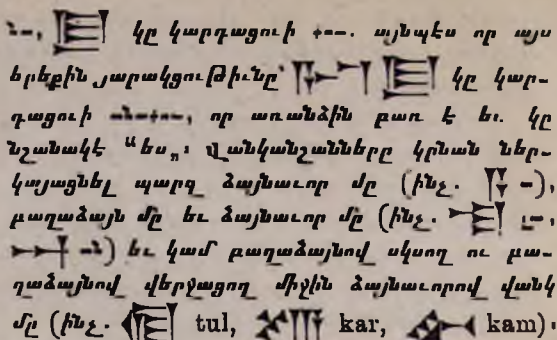 կը կարդացուի այնպէս որ այս
երեքին յարակցութիւնը՝ կը կար-
դացուի որ առանձին բառ է եւ. կը
նշանակէ "ես„։ Վանկանշանները կրնան ներ-
կայացնել պարզ ձայնաւոր մը (ինչ. 𒀀 ),
բաղաձայն մը եւ ձայնաւոր մը (ինչ.
) եւ կամ բաղաձայնով սկսող ու բա-
ղաձայնով վերջացող միջին ձայնաւորով վանկ
մը (ինչ. tul, kar, kam)։